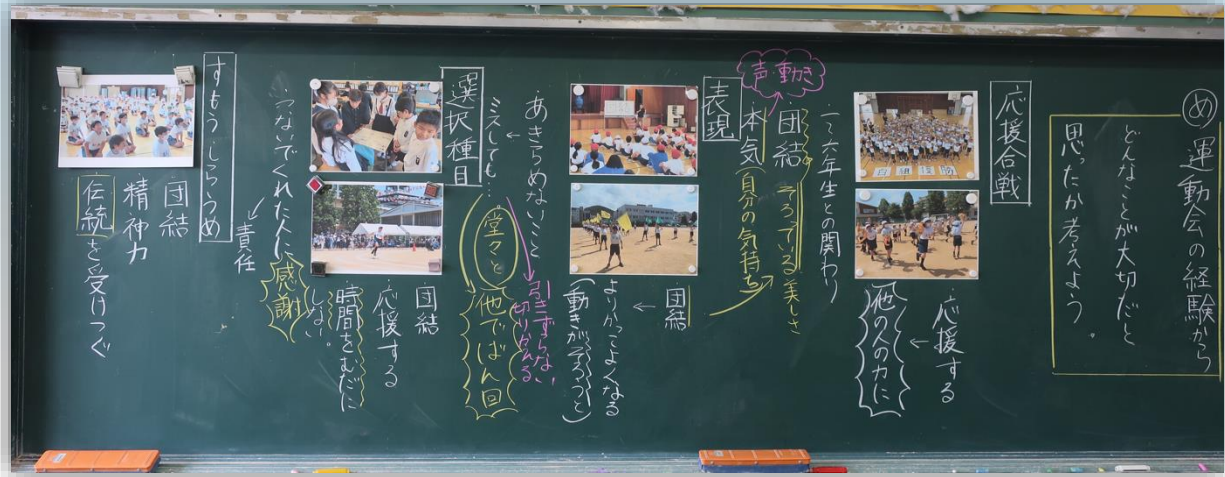 め 運動会の経験から
どんなことが大切だと
思ったか考えよう。
応援合戦
応援する
←
他の人の力に
一〜六年生との関わり
団結 そろっている美しさ
声・動き
本気(自分の気持ち)
表現
団結
←
よりかってよくなる
(動きがそろうと)
あきらめないこと
引きずらない
切りかえる
←
ミスしても…
堂々と
他でばん回
選択種目
団結
応援する
時間をむだに
しない。
つないでくれた人に感謝
←
責任
すもうしらうめ
団結
精神力
伝統を受けつぐ